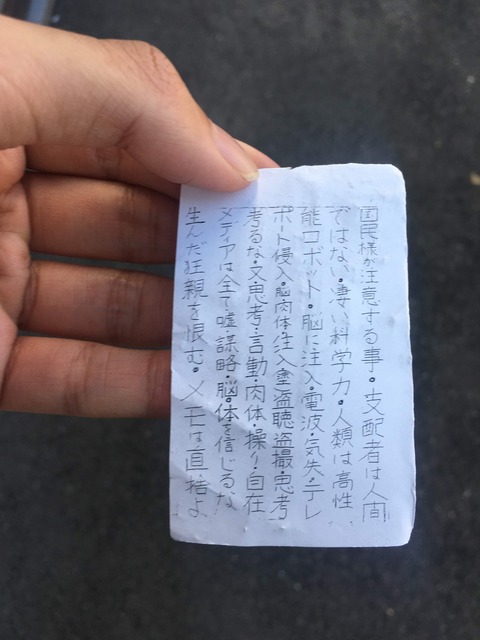 国民様が注意する事。支配者は人間
ではない・凄い科学力・人類は高性
能ロボット・脳に注入・電波・気失・テレ
ポート侵入・脳肉体・注入・盗聴盗撮・思考
考るな・文思考・言動・肉体・操り・自在
メディアは全て嘘・謀略・脳・体を信じるな
生んだ狂親を恨む。メモは直捨よ